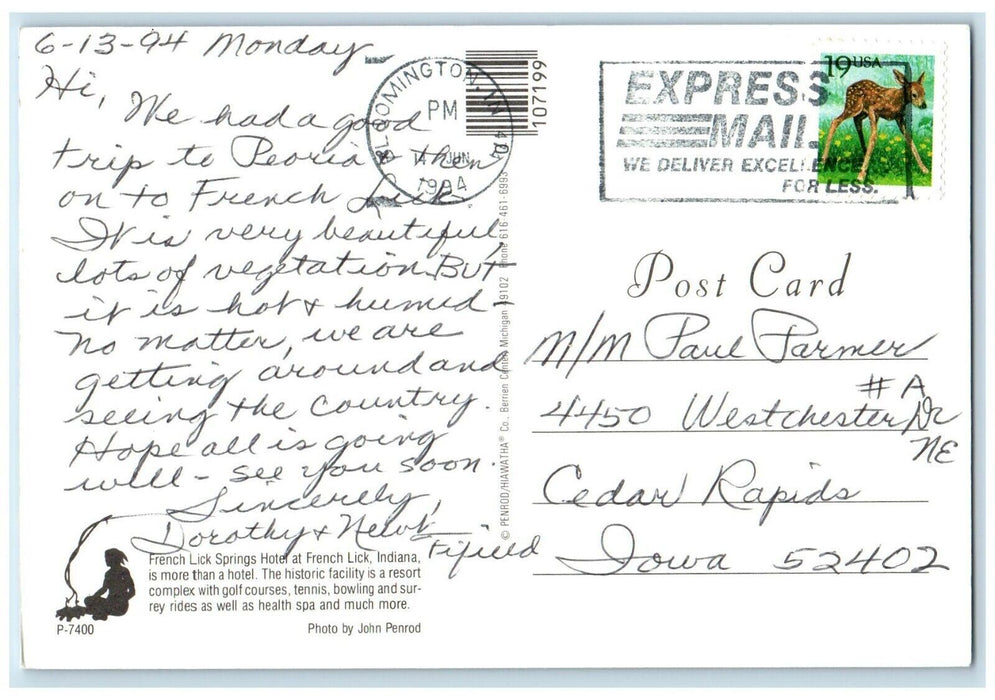 6-13-94 Monday
Hi,
We had a good
trip to Peoria & then
on to French Lick.
It is very beautiful,
lots of vegetation. BUT
it is hot & humid
No matter, we are
getting around and
seeing the country.
Hope all is going
well - see you soon.
Sincerely,
Dorothy & Newt
Fifield
French Lick Springs Hotel at French Lick, Indiana,
is more than a hotel. The historic facility is a resort
complex with golf courses, tennis, bowling and sur-
rey rides as well as health spa and much more.
P-7400
Photo by John Penrod
BLOOMINGTON, IN 474
PM
JUN
1994
107199
© PENROD/HIAWATHA® Co., Berrien Center, Michigan 49102 Phone 616-461-6993
EXPRESS
MAIL
WE DELIVER EXCELLENCE
FOR LESS.
19 USA
Post Card
M/M Paul Parmer
# A
4450 Westchester Dr
NE
Cedar Rapids
Iowa 52402